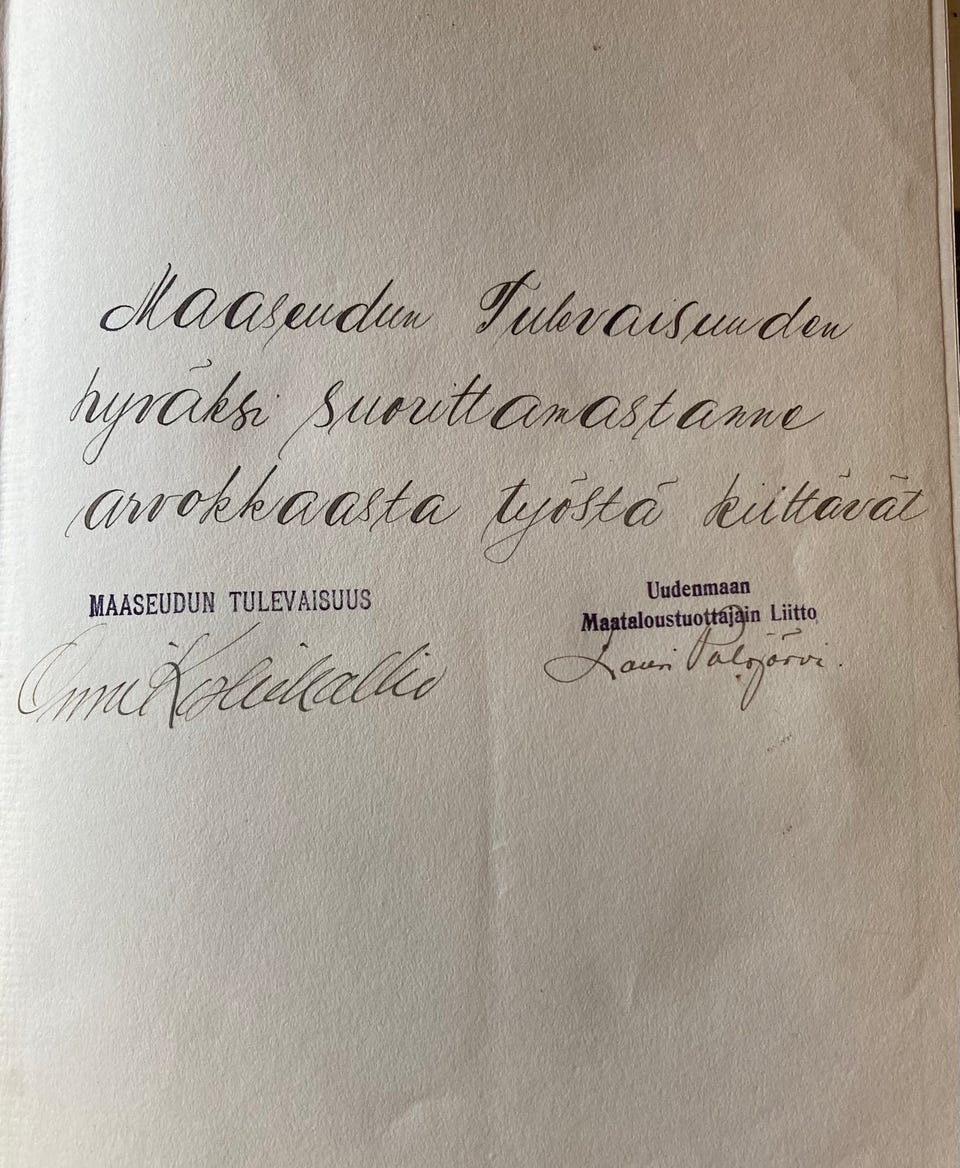 Maaseudun Tulevaisuuden
hyväksi suorittamastanne
arvokkaasta työstä kiittävät
MAASEUDUN TULEVAISUUS
Uudenmaan
Maataloustuottajain Liitto
Onni Koskikallio
Lauri Palojärvi.